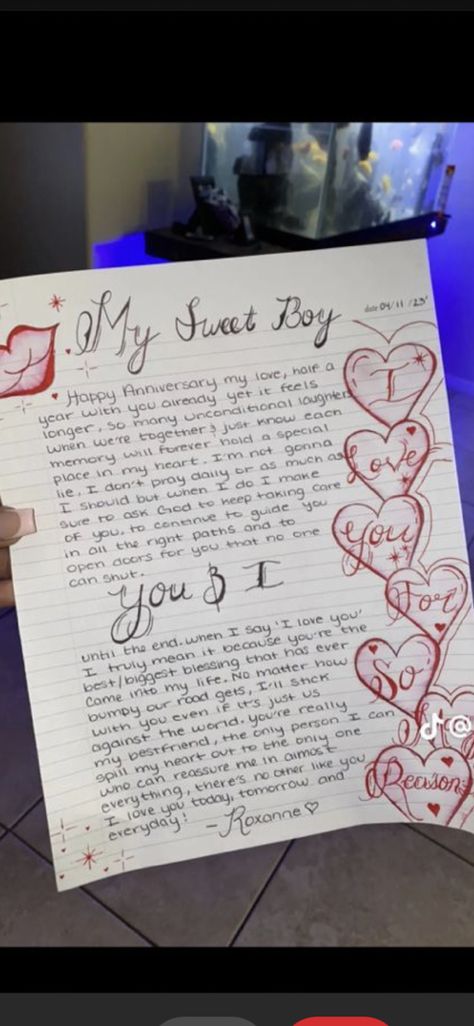 My Sweet Boy
date 04/11/23'
Happy Anniversary my love, half a
year with you already yet it feels
longer, so many unconditional laughters
when we're together & just know each
memory will forever hold a special
place in my heart. I'm not gonna
lie, I don't pray daily or as much as
I should but when I do I make
sure to ask God to keep taking care
of you, to continue to guide you
in all the right paths and to
open doors for you that no one
can shut.
You & I
until the end. when I say 'I love you'
I truly mean it because you're the
best/biggest blessing that has ever
came into my life. No matter how
bumpy our road gets, I'll stick
with you even if it's just us
against the world. you're really
my bestfriend, the only person I can
spill my heart out to the only one
who can reassure me in almost
everything, there's no other like you
I love you today, tomorrow and
everyday!
-Roxanne
I
Love
You
For
So
Reasons
@